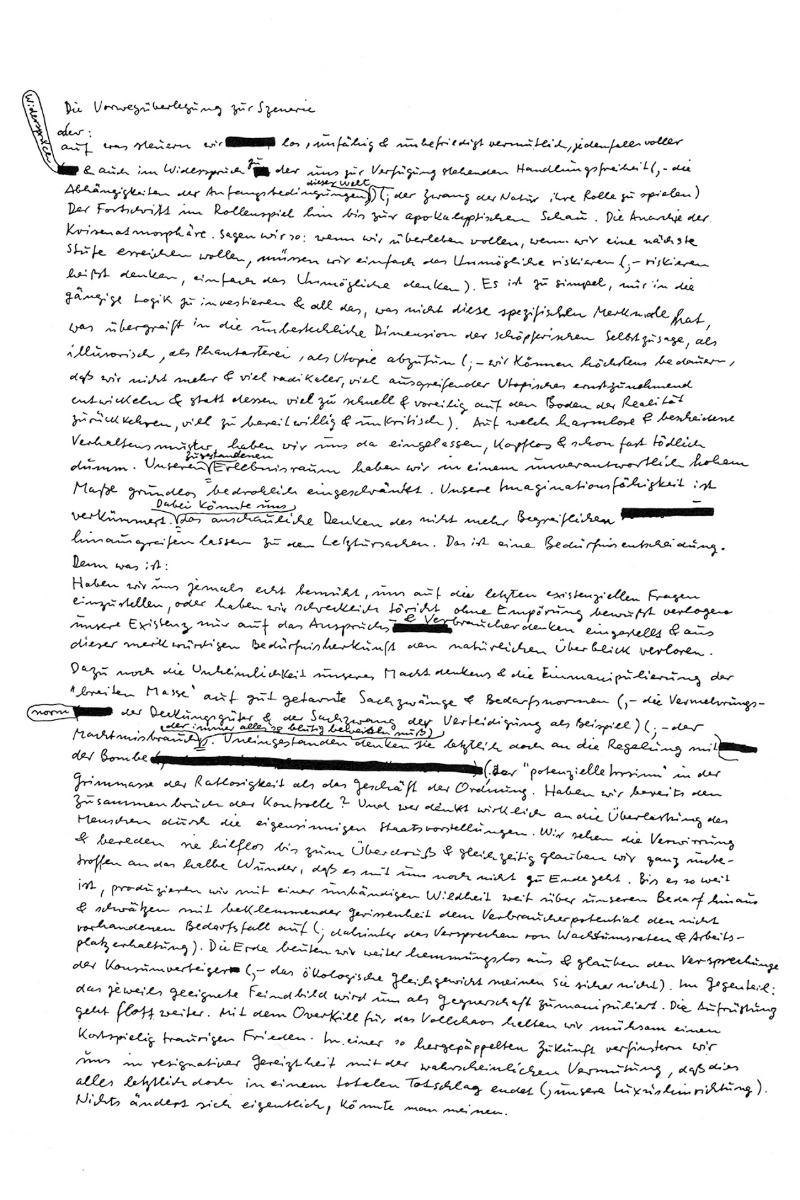 Die Vorwegüberlegung zur Szenerie
oder:
auf was steuern wir los, unfähig & unbefriedigt vermutlich, jedenfalls voller
Widersprüche
& auch im Widerspruch zu der uns zur Verfügung stehenden Handlungsfreiheit (,– die
dieser Welt
Abhängigkeiten der Anfangsbedingungen) (; der Zwang der Natur ihre Rolle zu spielen)
Der Fortschritt im Rollenspiel hin bis zur apokalyptischen Schau. Die Anarchie der
Krisenatmosphäre. Sagen wir so: wenn wir überleben wollen, wenn wir eine nächste
Stufe erreichen wollen, müssen wir einfach das Unmögliche riskieren (,– riskieren
heißt denken, einfach das Unmögliche denken). Es ist zu simpel, nur in die
gängige Logik zu investieren & all das, was nicht diese spezifischen Merkmale hat,
was übergreift in die unbestechliche Dimension der schöpferischen Selbstzusage, als
illusorisch, als Phantasterei, als Utopie abzutun (,– wir können höchstens bedauern,
daß wir nicht mehr & viel radikaler, viel ausgreifender Utopisches ernstzunehmend
entwickeln & statt dessen viel zu schnell & voreilig auf den Boden der Realität
zurückkehren, viel zu bereitwillig & unkritisch). Auf welch harmlose & bescheidene
Verhaltensmuster haben wir uns da eingelassen, kopflos & schon fast tödlich
zugestandenen
dumm. Unseren Erlebnisraum haben wir in einem unverantwortlich hohem
Maße grundlos bedrohlich eingeschränkt. Unsere Imaginationsfähigkeit ist
Dabei könnte uns
verkümmert. das anschauliche Denken des nicht mehr Begreiflichen
hinausgreifen lassen zu den Letztursachen. Das ist eine Bedürfnisentscheidung.
Denn was ist:
Haben wir uns jemals echt bemüht, uns auf die letzten existenziellen Fragen
einzustellen, oder haben wir schrecklich töricht ohne Empörung bewußt verlogen
unsere Existenz nur auf das Anspruchs & Verbraucherdenken eingestellt & aus
dieser merkwürdigen Bedürfnisherkunft den natürlichen Überblick verloren.
Dazu noch die Unheimlichkeit unseres Machtdenkens & die Einmanipulierung der
'breiten Masse' auf gut getarnte Sachzwänge & Bedarfsnormen (,– die Vermehrungs-
norm der Deckungsgüter & der Sachzwang der Verteidigung als Beispiel) (,– der
der immer alles so blutig beweisen muß
Machtmissbrauch). Uneingestanden denken sie letztlich doch an die Regelung mit
der Bombe (. der "potenzielle Irrsinn" in der
Grimmasse der Ratlosigkeit als das Geschäft der Ordnung. Haben wir bereits den
Zusammenbruch der Kontrolle? Und wer denkt wirklich an die Überlastung des
Menschen durch die eigensinnigen Staatsvorstellungen. Wir sehen die Verwirrung
& bereden sie hilflos bis zum Überdruß & gleichzeitig glauben wir ganz unbe-
troffen an das halbe Wunder, daß es mit uns noch nicht zu Ende geht. Bis es so weit
ist, produzieren wir mit einer unbändigen Wildheit weit über unseren Bedarf hinaus
& schwätzen mit beklemmender gerissenheit dem Verbraucherpotential den nicht
vorhandenen Bedarfsfall auf (; dahinter das Versprechen von Wachtumsraten & Arbeits-
platzerhaltung). Die Erde beuten wir weiter hemmungslos aus & glauben den Versprechungen
der Konsumverteiger (,– das ökologische gleichgewicht meinen sie sicher nicht). Im Gegenteil:
das jeweils geeignete Feindbild wird uns als Gegnerschaft zumanipuliert. Die Aufrüstung
geht flott weiter. Mit dem Overkill für das Vollchaos halten wir mühsam einen
kostspielig traurigen Frieden. In einer so hergepäppelten Zukunft verfinstern wir
uns in resignativer gereiztheit mit der wahrscheinlichen Vermutung, daß dies
alles letztlich doch in einem totalen Totschlag endet (, unsere Luxushinrichtung).
Nichts ändert sich eigentlich, könnte man meinen.